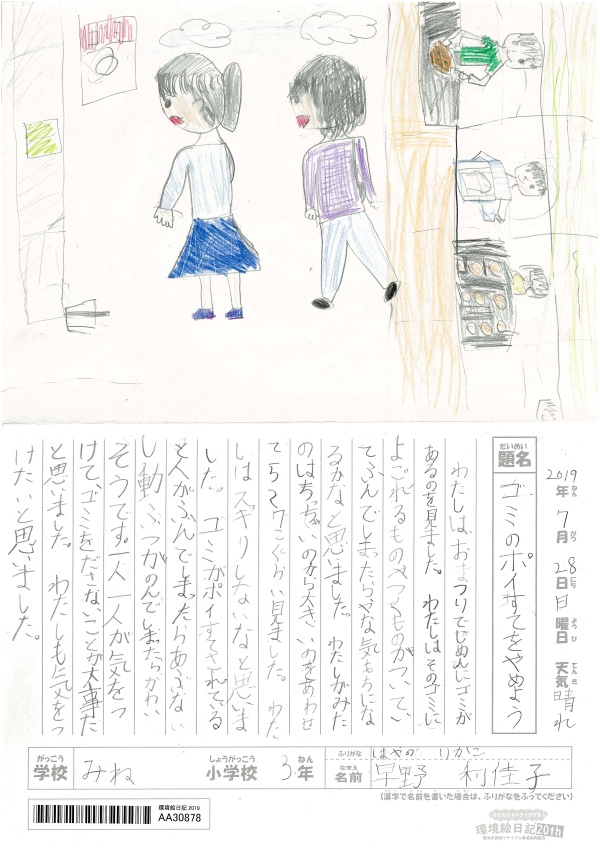 2019年7月28日日曜日 天気晴れ
ねん がつ にち ようび てんき
だいめい
題名
ゴミのポイすてをやめよう
わたしは、おまつりでじめんにゴミが
あるのを見ました。わたしはそのゴミに
よごれるものやつくものがついてい
てふんでしまったらやな気もちにな
るかなと思いました。わたしがみた
のはちっちゃいのから大きいのをあわせ
て5〜7こぐらい見ました。わた
しはスッキリしないなと思いま
した。ゴミがポイすてされている
と人がふんでしまったらあぶない
し動ぶつがのんでしまったらかわい
そうです。一人一人が気をつ
けて、ゴミをださないことが大事だ
と思いました。わたしも気をつ
けたいと思いました。
がっこう しょうがっこう ねん
学校 みね 小学校 3年
ふりがな はやの りかこ
なまえ
名前 早野 利佳子
(漢字で名前を書いた場合は、ふりがなをふってください)
環境絵日記 2019
AA30878
環境絵日記20th